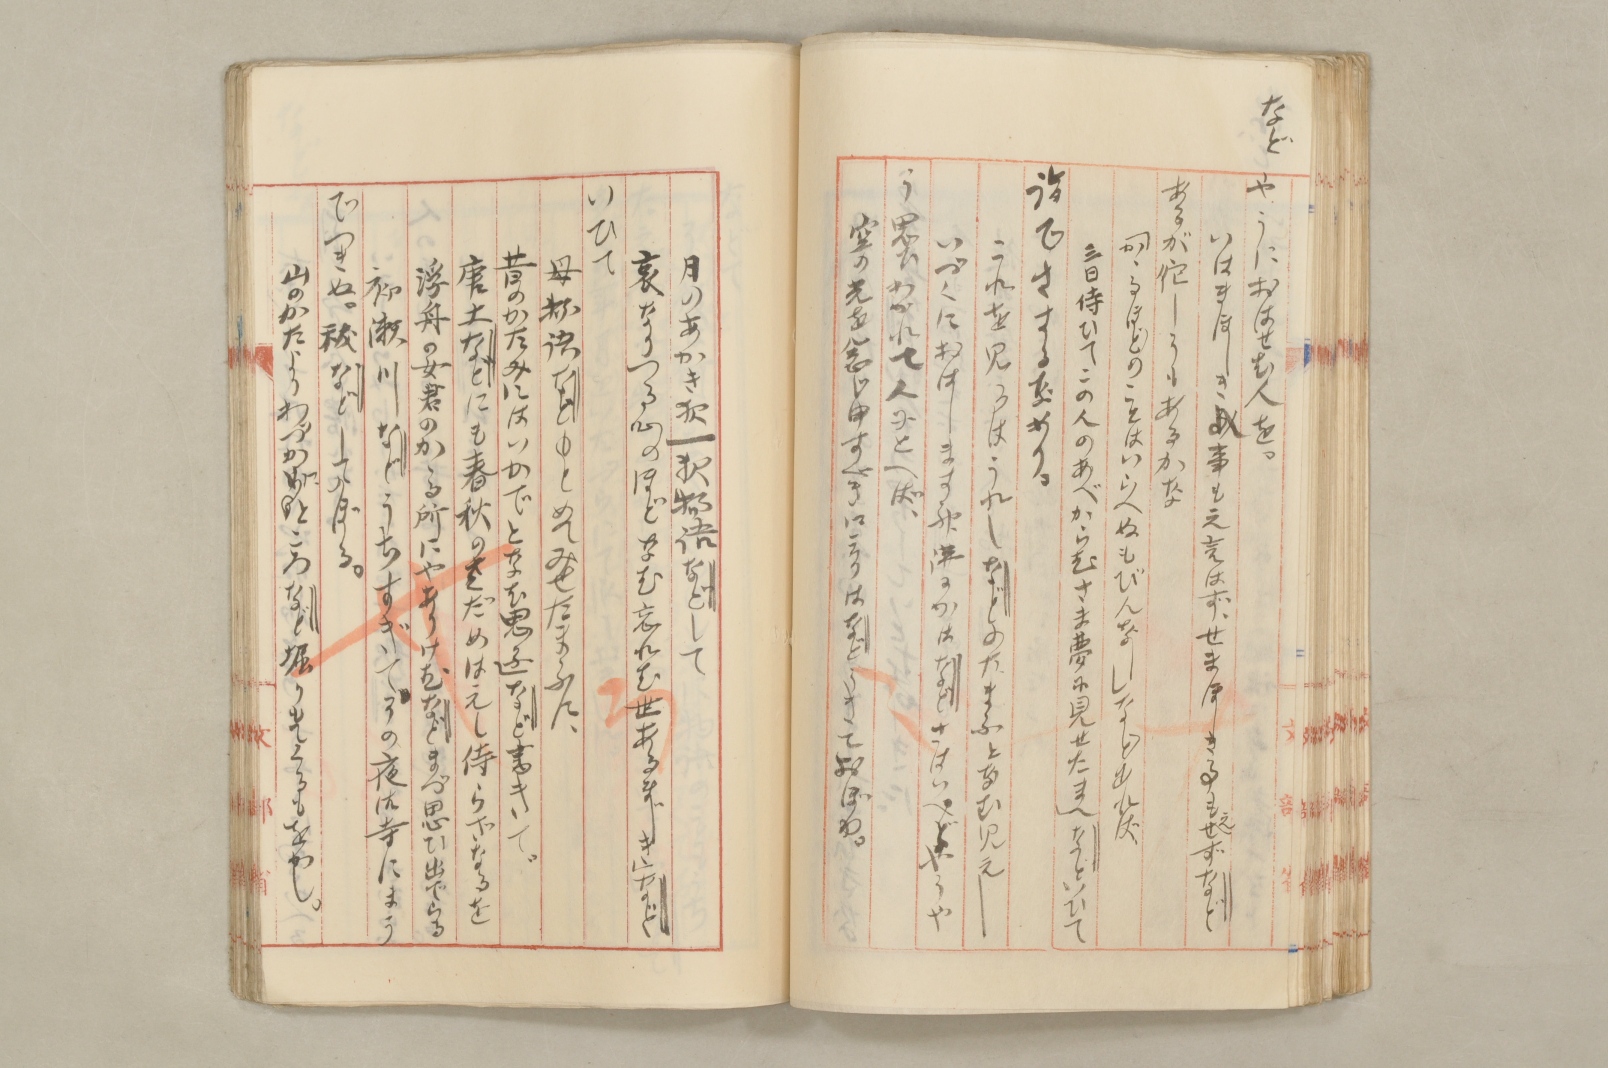 など
やうにおはせむ人を。
いはまほしき事も え言はず、せまほしき事もえせずなど
あるが侘しうもあるかな
かゝるほどのことはいらへぬもびんなし」など出れば、
三日侍ひてこの人のあべからむさま夢に見せたまへ」などいひて
詣でさするなめり。
うれを見るはうれしなどのたまふとなむ見えし
いづくにおはしますみ
などさはいへどやうや
う思ひわかれて人などへば、
空の光を念じ申すべきにこそはなどうきておぼゆ。
月のあかき夜一夜物語などして
哀なりつる心のほどなむ忘れむ世あるまじきなど
いひて
母物語などもとめてみせたまふに、
昔のかたみにはいかでとなむ思ふなど書きいで。
唐土などにも春秋のさだめはえし侍らざなるを
浮舟の女君のかゝる所にやありけむなどまづ思ひ出でらる
初瀬川などうちすぎいてその夜御寺にまう
でつきぬ。祓などしてのぼる。
山のかたよりわづかにところなど堀りもてくるもをかし。
文部省